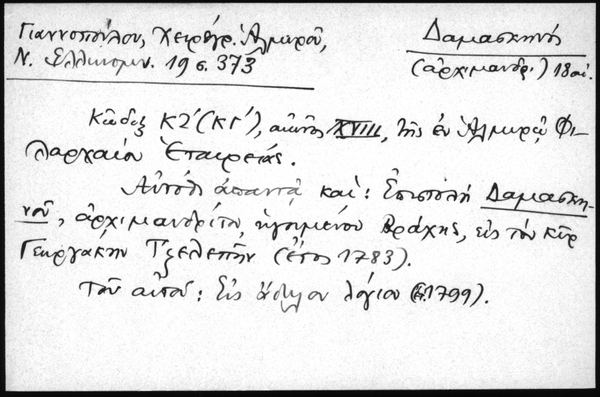 Γιαννοπούλου, Χειρόγρ. Ἁλμυροῦ,
Ν. Ἑλληνομν. 19 σ. 373
Δαμασκηνός
(ἀρχιμανδρ.) 18 αἰ.
Κῶδιξ Κ2΄ (ΚΓ΄), αἰῶνος XVIII, τῆς ἐν Ἁλμυρῷ Φι-
λαρχαίου Ἑταιρείας.
Αὐτόθι ἀπαντᾷ καὶ: Ἐπιστολὴ Δαμασκη-
νοῦ, ἀρχιμανδρίτου, ἡγουμένου Βράχης, εἰς τὸν κῦρ
Γεωργάκην Τζελεπῆν (ἔτος 1783).
Τοῦ αὐτοῦ: Εἰς λόγιον (ἔ. 1799).